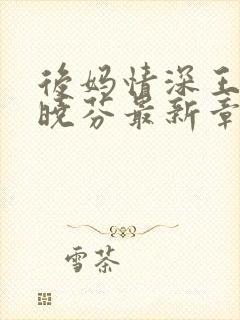 後妈情深王
晓芬最新章
雪茶